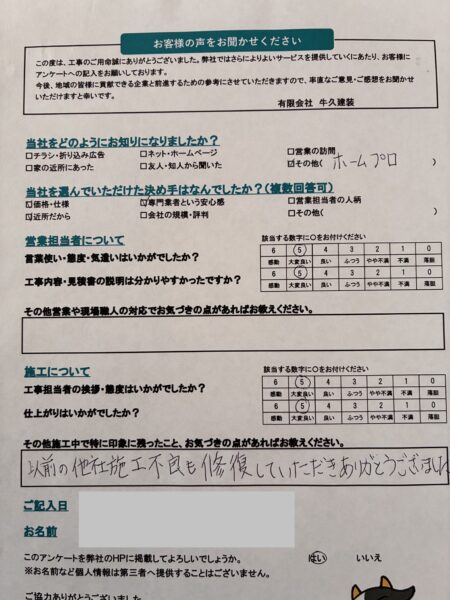 お客様の声をお聞かせください
この度は、工事のご用命誠にありがとうございました。弊社ではさらによりよいサービスを提供していくにあたり、お客様に
アンケートへの記入をお願いしております。
今後、地域の皆様に貢献できる企業と前進するための参考にさせていただきますので、率直なご意見・ご感想をお聞かせ
いただけますと幸いです。
有限会社 牛久建装
当社をどのようにお知りになりましたか?
□チラシ・折り込み広告 □ネット・ホームページ □営業の訪問
□家の近所にあった □友人・知人から聞いた ☑その他( ホームプロ )
当社を選んでいただけた決め手はなんでしたか?(複数回答可)
☑価格・仕様 ☑専門業者という安心感 □営業担当者の人柄
☑近所だから □会社の規模・評判 □その他( )
営業担当者について 該当する数字に○をお付けください
言葉使い・態度・気遣いはいかがでしたか? 6 5 4 3 2 1 0
感動 大変良い 良い ふつう やや不満 不満 落胆
工事内容・見積書の説明は分かりやすかったですか? 6 5 4 3 2 1 0
感動 大変良い 良い ふつう やや不満 不満 落胆
その他営業や現場職人の対応でお気づきの点があればお教えください。
施工について 該当する数字に○をお付けください
工事担当者の挨拶・態度はいかがでしたか? 6 5 4 3 2 1 0
感動 大変良い 良い ふつう やや不満 不満 落胆
仕上がりはいかがでしたか? 6 5 4 3 2 1 0
感動 大変良い 良い ふつう やや不満 不満 落胆
その他施工中で特に印象に残ったこと、お気づきの点があればお教えください。
以前の他社施工不良も修復していただきありがとうございました
ご記入日
お名前
このアンケートを弊社のHPに掲載してよろしいでしょうか。 はい いいえ
※お名前など個人情報は第三者へ提供することはございません。
ご協力ありがとうございました